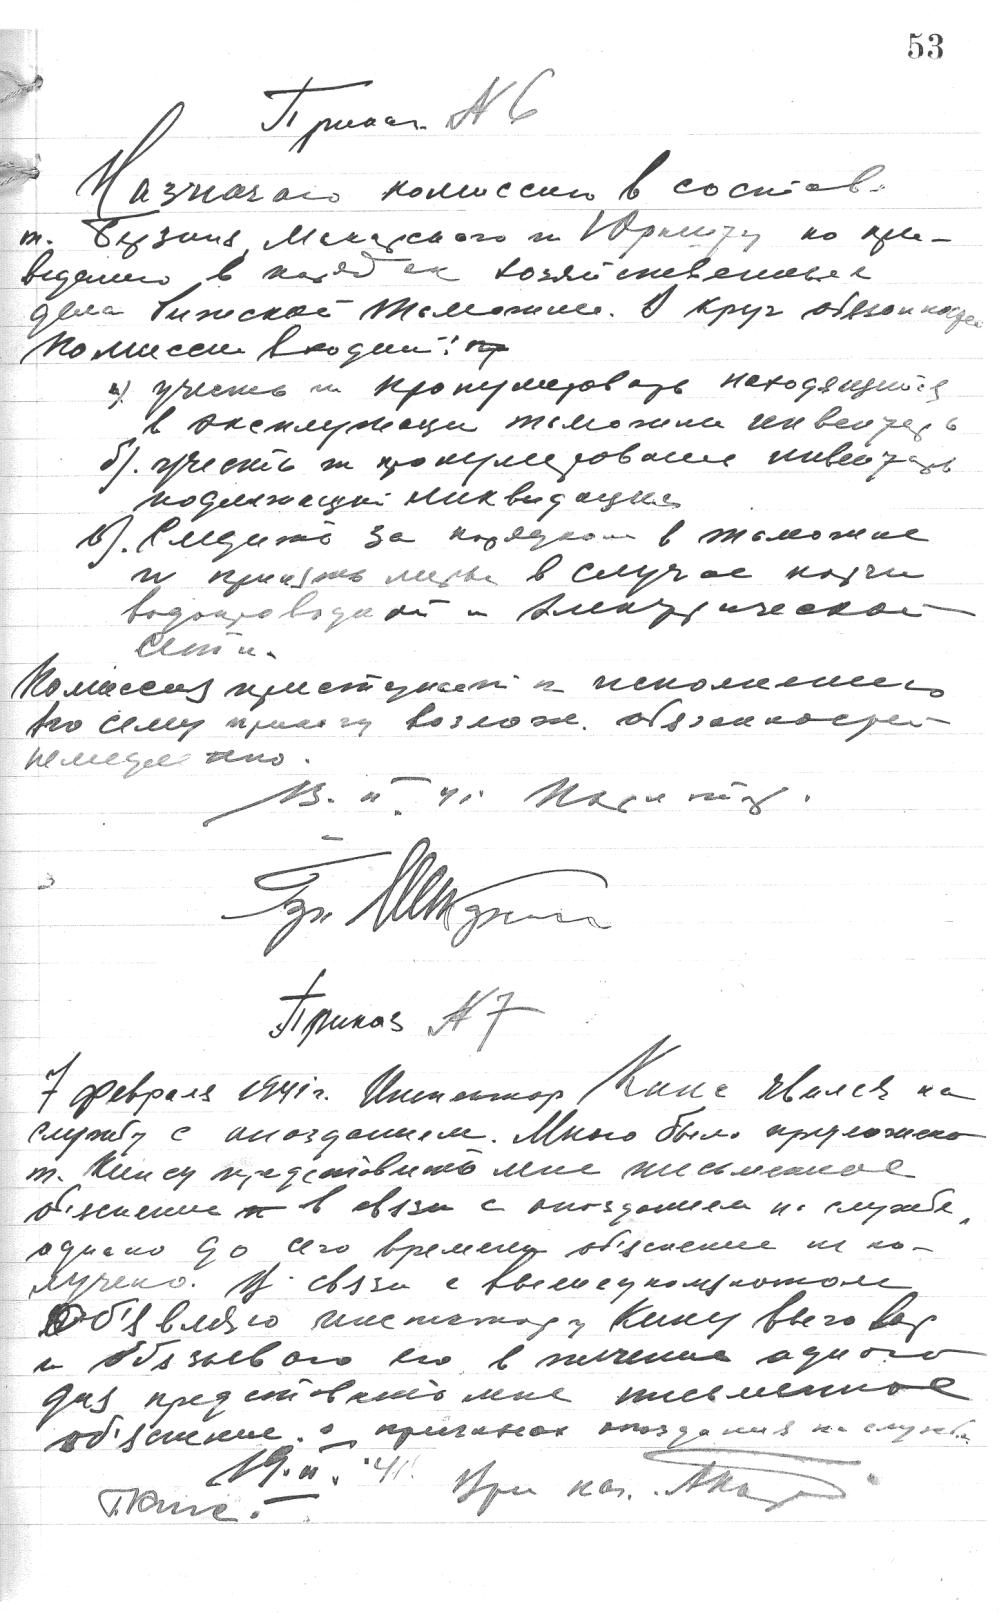 53
Приказ N 6
Назначаю комиссию в составе
т. Берзиня, Макарского и по при-
ведению в порядок хозяйственные
дела Рижской Таможни. В круг обязанностей
Комиссии входит:
а) учесть и пронумеровать находящийся
в эксплуатации таможни инвентарь
б). учесть и пронумерование инвентарь
подлежащий ликвидации
в). Следить за порядком в таможне
и принять меры в случае порчи
водопроводной и электрической
сети.
Комиссия приступает к исполнению
по сему приказу возлож. обязанностей
немедленно.
13. II. 41.
Приказ N 7
7 февраля 1941 г. Инспектор Кинс явился на
службу с опозданием. Мною было предложено
т. Кинсу представить мне письменное
об'яснение в связи с опозданием на службе,
однако до сего времени об'яснение не по-
лучено. В связи с вышеуказанном
Об'являю инспектору Кинсу выговор
и обязываю его в течение одного
дня представить мне письменное
об'яснение о причинах опоздания на службу.
19. II. 41. Врид нач.